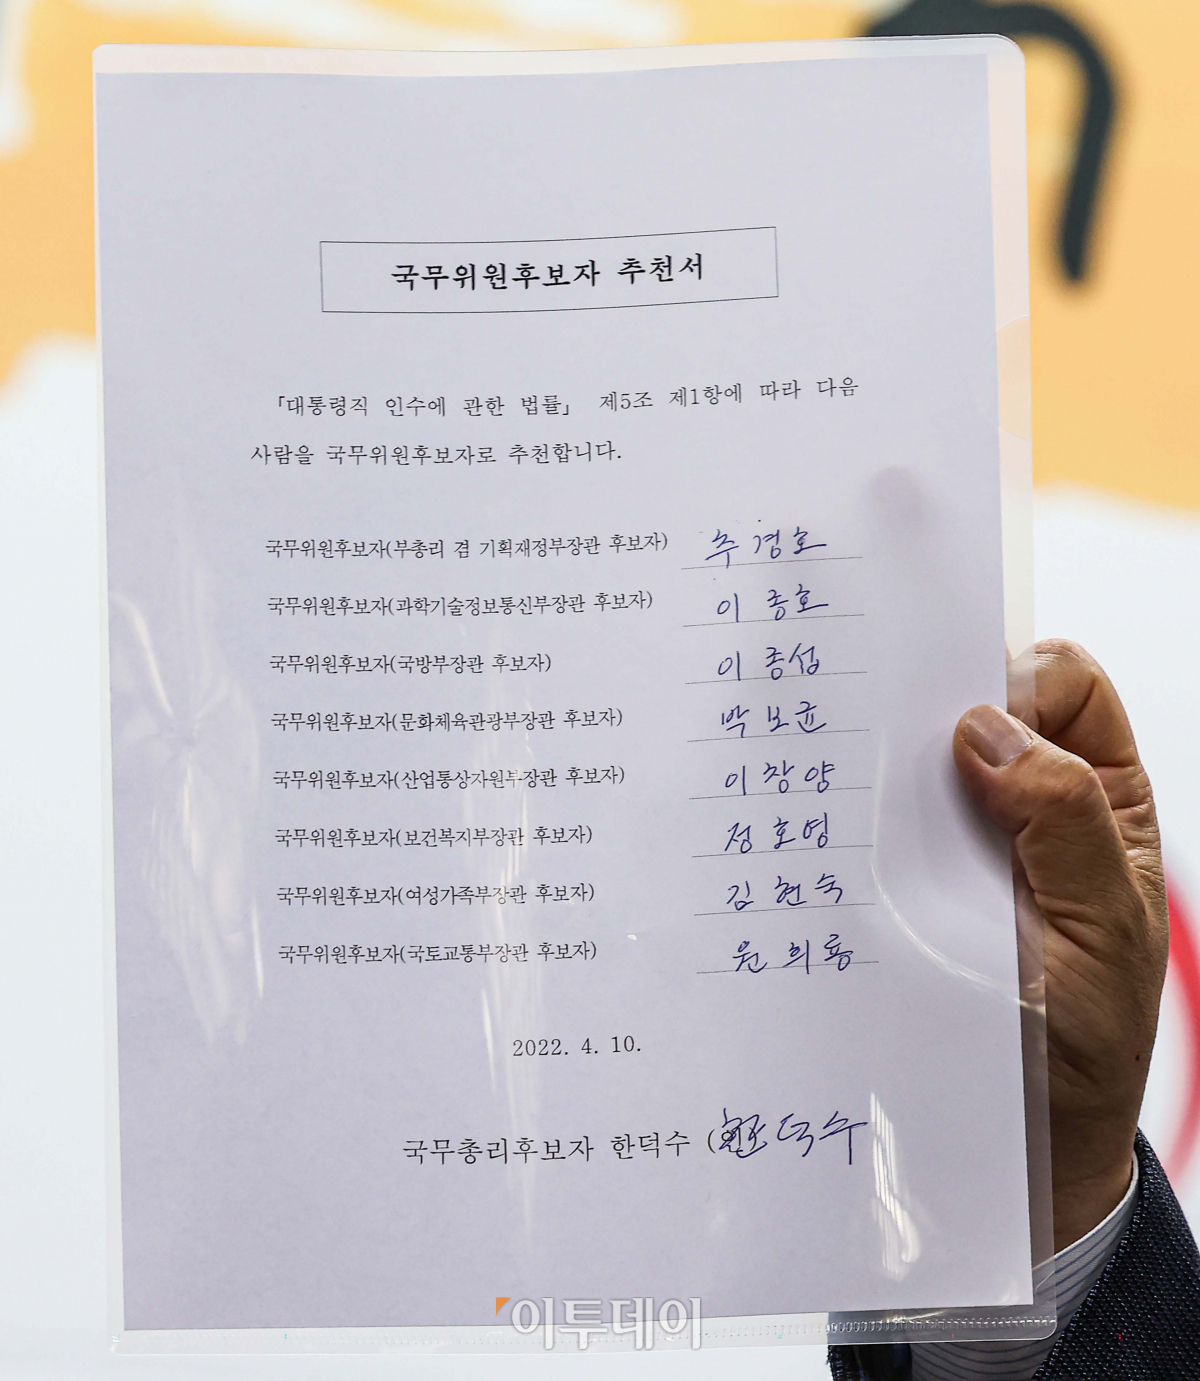 국무위원후보자 추천서
「대통령직 인수에 관한 법률」 제5조 제1항에 따라 다음
사람을 국무위원후보자로 추천합니다.
국무위원후보자(부총리 겸 기획재정부장관 후보자) 추경호
국무위원후보자(과학기술정보통신부장관 후보자) 이종호
국무위원후보자(국방부장관 후보자) 이종섭
국무위원후보자(문화체육관광부장관 후보자) 박보균
국무위원후보자(산업통상자원부장관 후보자) 이창양
국무위원후보자(보건복지부장관 후보자) 정호영
국무위원후보자(여성가족부장관 후보자) 김현숙
국무위원후보자(국토교통부장관 후보자) 원희룡
2022. 4. 10.
국무총리후보자 한덕수 ( 한덕수
이투데이